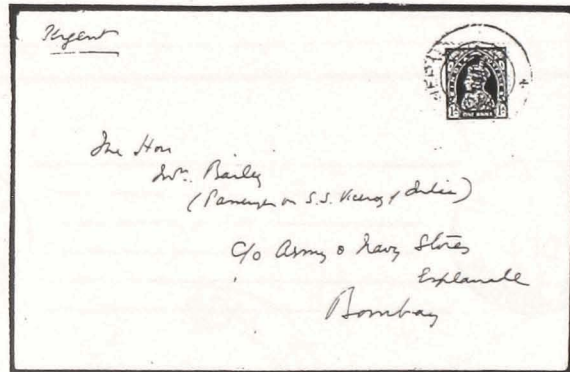 Urgent
NEPAL
ONE ANNA
The Hon
Mrs. Bailey
(Passenger on S.S. Viceroy of India)
C/o Army & Navy Stores
Esplanade
Bombay